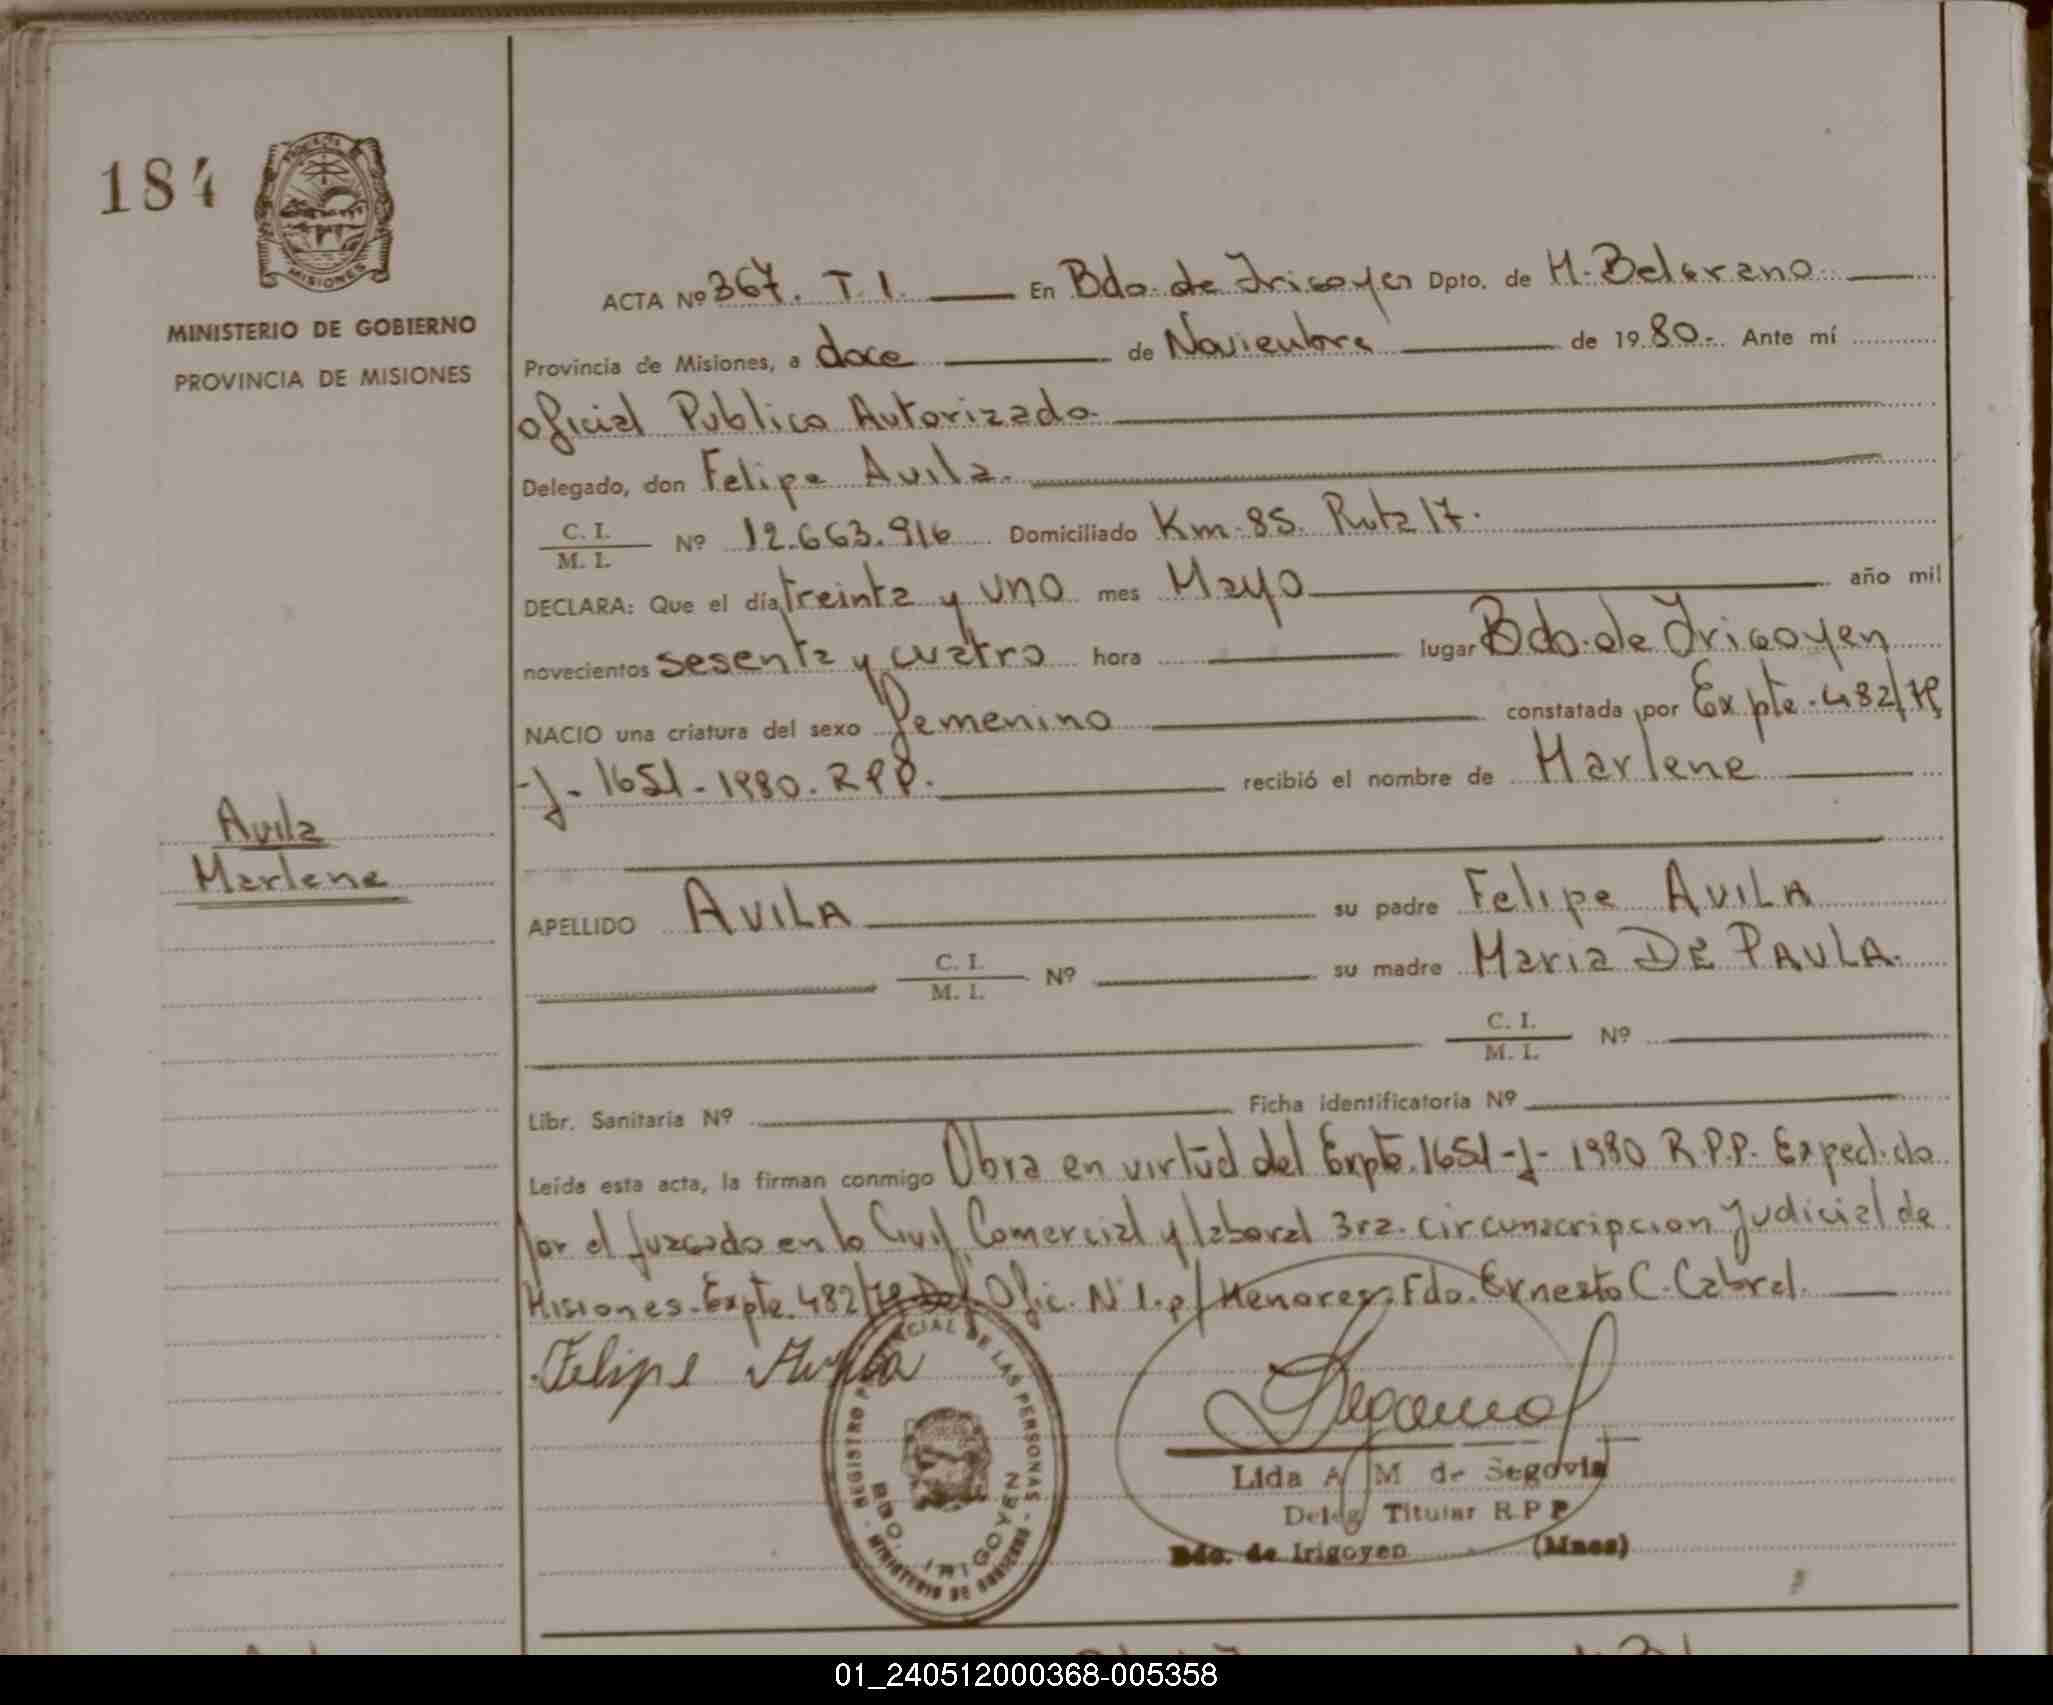 184
PROVINCIA DE
MISIONES
MINISTERIO DE GOBIERNO
PROVINCIA DE MISIONES
Avila
Marlene
ACTA Nº 367. T. I. En Bdo. de Irigoyen Dpto. de M. Belgrano
Provincia de Misiones, a doce de Noviembre de 1980.- Ante mí
Oficial Publico Autorizado.
Delegado, don Felipe Avila.
C. I.
M. I. Nº 12.663.916 Domiciliado Km. 85. Ruta 17.
DECLARA: Que el día treinta y uno mes Mayo año mil
novecientos sesenta y cuatro hora lugar Bdo. de Irigoyen
NACIO una criatura del sexo femenino constatada por Expte. 482/79
-J- 1651-1980. RPP. recibió el nombre de Marlene
APELLIDO AVILA su padre Felipe AVILA
C. I.
M. I. Nº su madre Maria DE PAULA.
C. I.
M. I. Nº
Libr. Sanitaria Nº Ficha identificatoria Nº
Leída esta acta, la firman conmigo Obra en virtud del Expte. 1651-J-1980 R.P.P. Expedido
por el Juzgado en lo Civil, Comercial y laboral 3ra. circunscripcion Judicial de
Misiones. Expte. 482/79 Def. Ofic. Nº 1. p/ Menores. Fdo. Ernesto C. Cabral.
Felipe Avila
REGISTRO PROVINCIAL DE LAS PERSONAS - MINISTERIO DE GOBIERNO -
BDO. IRIGOYEN
Lida A M de Segovia
Deleg Titular R P P
Bdo. de Irigoyen (Mnes)
01_240512000368-005358